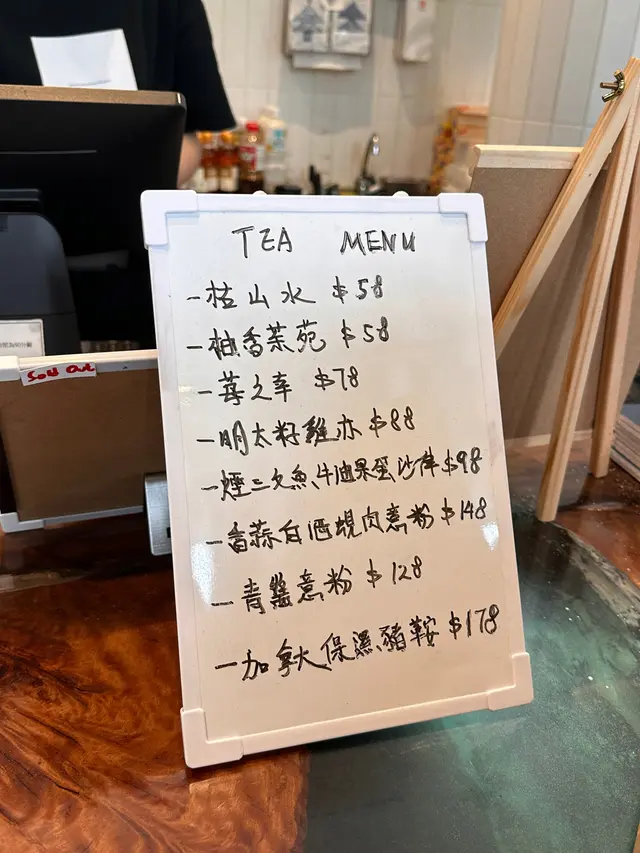 TEA MENU
-枯山水 $58
-柚香茶苑 $58
-莓之幸 $78
-明太籽雞亦 $88
-煙三文魚牛油果蛋沙律 $98
-香蒜白酒蜆肉意粉 $148
-青意粉 $128
-加拿大保濕豬鞍 $178
Sold Out